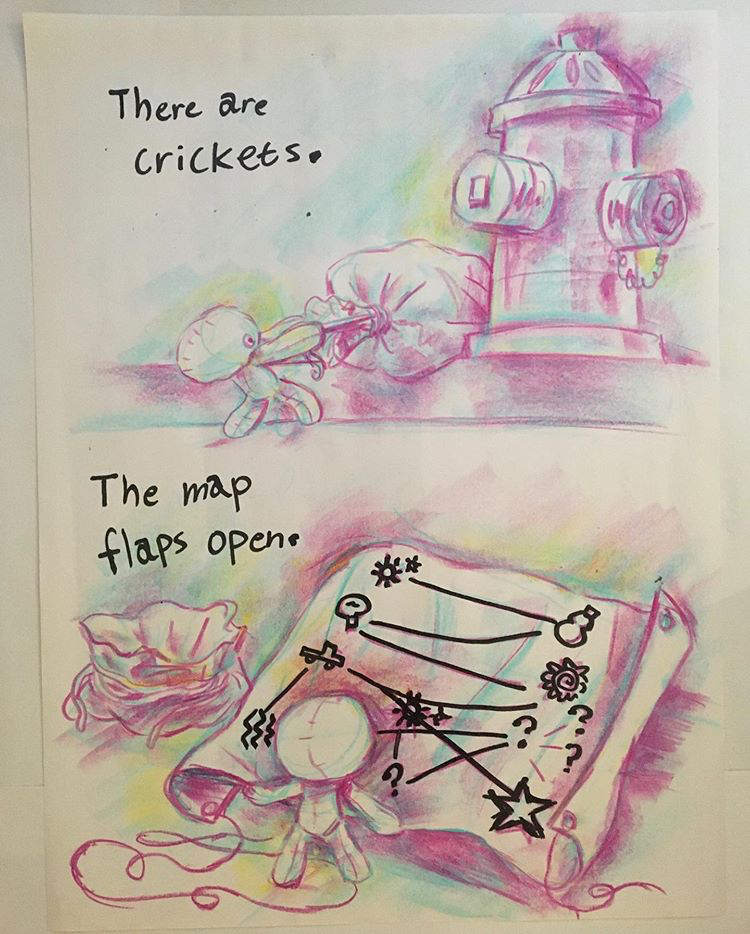 There are
crickets.
The map
flaps open.
?
?
?
?